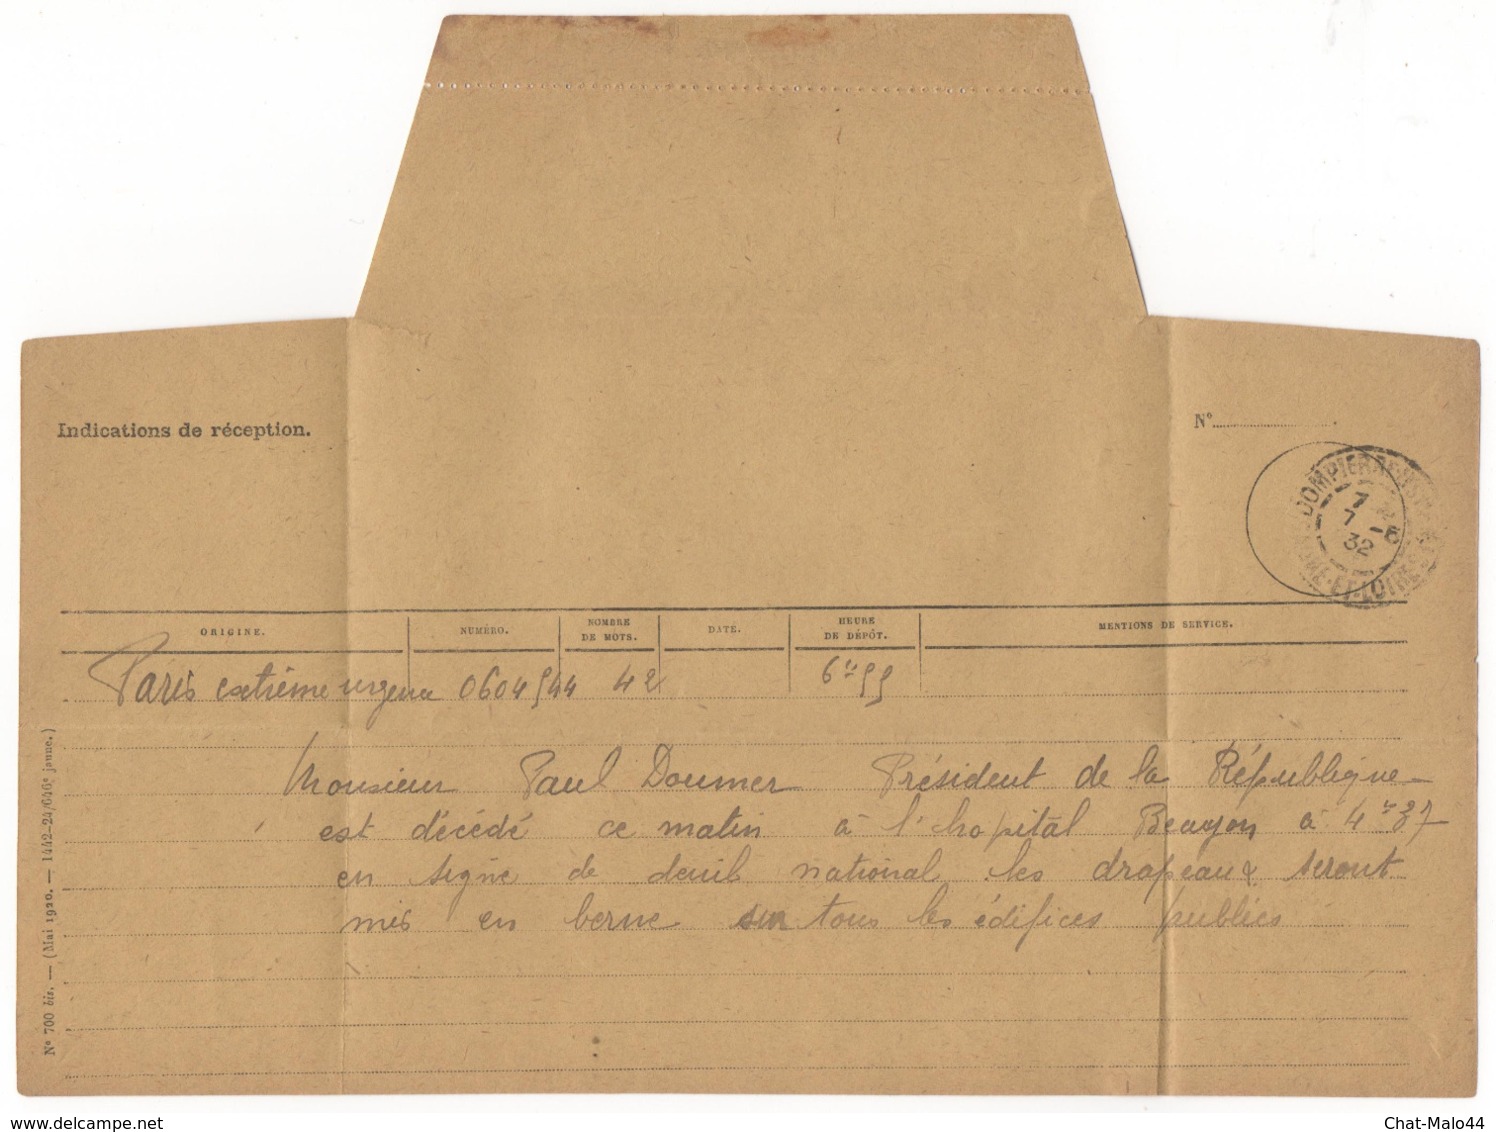 Indications de réception.
N°
DOMPIERRE
7
7 -5
32
ET-LOIRE
ORIGINE. NUMÉRO. NOMBRE DE MOTS. DATE. HEURE DE DÉPÔT. MENTIONS DE SERVICE.
Paris extrème urgence 0604544 42 6h55
Monsieur Paul Doumer Président de la République
est décédé ce matin à l'hopital Beaujon à 4h37
en signe de deuil national les drapeaux seront
mis en berne sur tous les édifices publics
N° 700 bis. — (Mai 1920. — 1442-24/646e jaune.)
Chat-Malo44